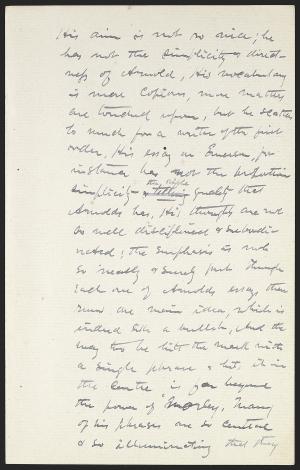 His aim is not so nice; he
has not the simplicity & direct-
ness of Arnold, His vocabulary
is more copious, more matters
are touched upon, but he scatters
too much for a writer of the first
order, His essay on Emerson, for
instance has not the
simplicity & the single telling quality that
Arnolds has, His thoughts are not
so well disciplined & subordi-
nated; the emphasis is not
so neatly & surely put. Through
each one of Arnolds essays there
runs one main idea, which is
indeed like a bullet, And the
way too he hits the mark with
a single phrase & hits it in
the centre is far beyond
the power of Morley. Many
of his phrases are so central
& so illuminating that they